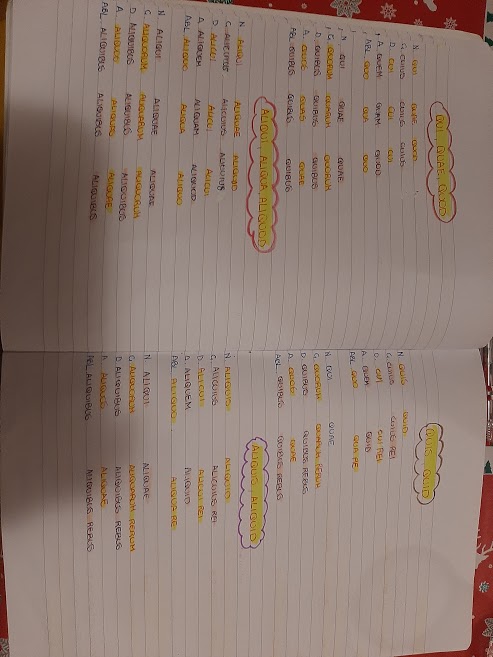 QUI QUAE QUOD
N. QUI QUAE QUOD
G. CUIUS CUIUS CUIUS
D. CUI CUI CUI
A. QUEM QUAM QUOD
ABL. QUO QUA QUO
N. QUI QUAE QUAE
G. QUORUM QUARUM QUORUM
D. QUIBUS QUIBUS QUIBUS
A. QUOS QUAS QUAE
ABL. QUIBUS QUIBUS QUIBUS
ALIQUI ALIQUA ALIQUOD
N. ALIQUI ALIQUAE ALIQUOD
G. ALICUIUS ALICUIUS ALICUIUS
D. ALICUI ALICUI ALICUI
A. ALIQUEM ALIQUAM ALIQUOD
ABL. ALIQUO ALIQUA ALIQUO
N. ALIQUI ALIQUAE ALIQUAE
G. ALIQUORUM ALIQUARUM ALIQUORUM
D. ALIQUIBUS ALIQUIBUS ALIQUIBUS
A. ALIQUOS ALIQUAS ALIQUAE
ABL. ALIQUIBUS ALIQUIBUS ALIQUIBUS
QUIS QUID
N. QUIS QUID
G. CUIUS CUIUS REI
D. CUI CUI REI
A. QUEM QUID
ABL. QUO QUA RE
N. QUI QUAE
G. QUORUM QUARUM RERUM
D. QUIBUS QUIBUS REBUS
A. QUOS QUAE
ABL. QUIBUS QUIBUS REBUS
ALIQUIS ALIQUID
N. ALIQUIS ALIQUID
G. ALICUIUS ALICUIUS REI
D. ALICUI ALICUI REI
A. ALIQUEM ALIQUID
ABL. ALIQUO ALIQUA RE
N. ALIQUI ALIQUAE
G. ALIQUORUM ALIQUARUM RERUM
D. ALIQUIBUS ALIQUIBUS REBUS
A. ALIQUOS ALIQUAE
ABL. ALIQUIBUS ALIQUIBUS REBUS